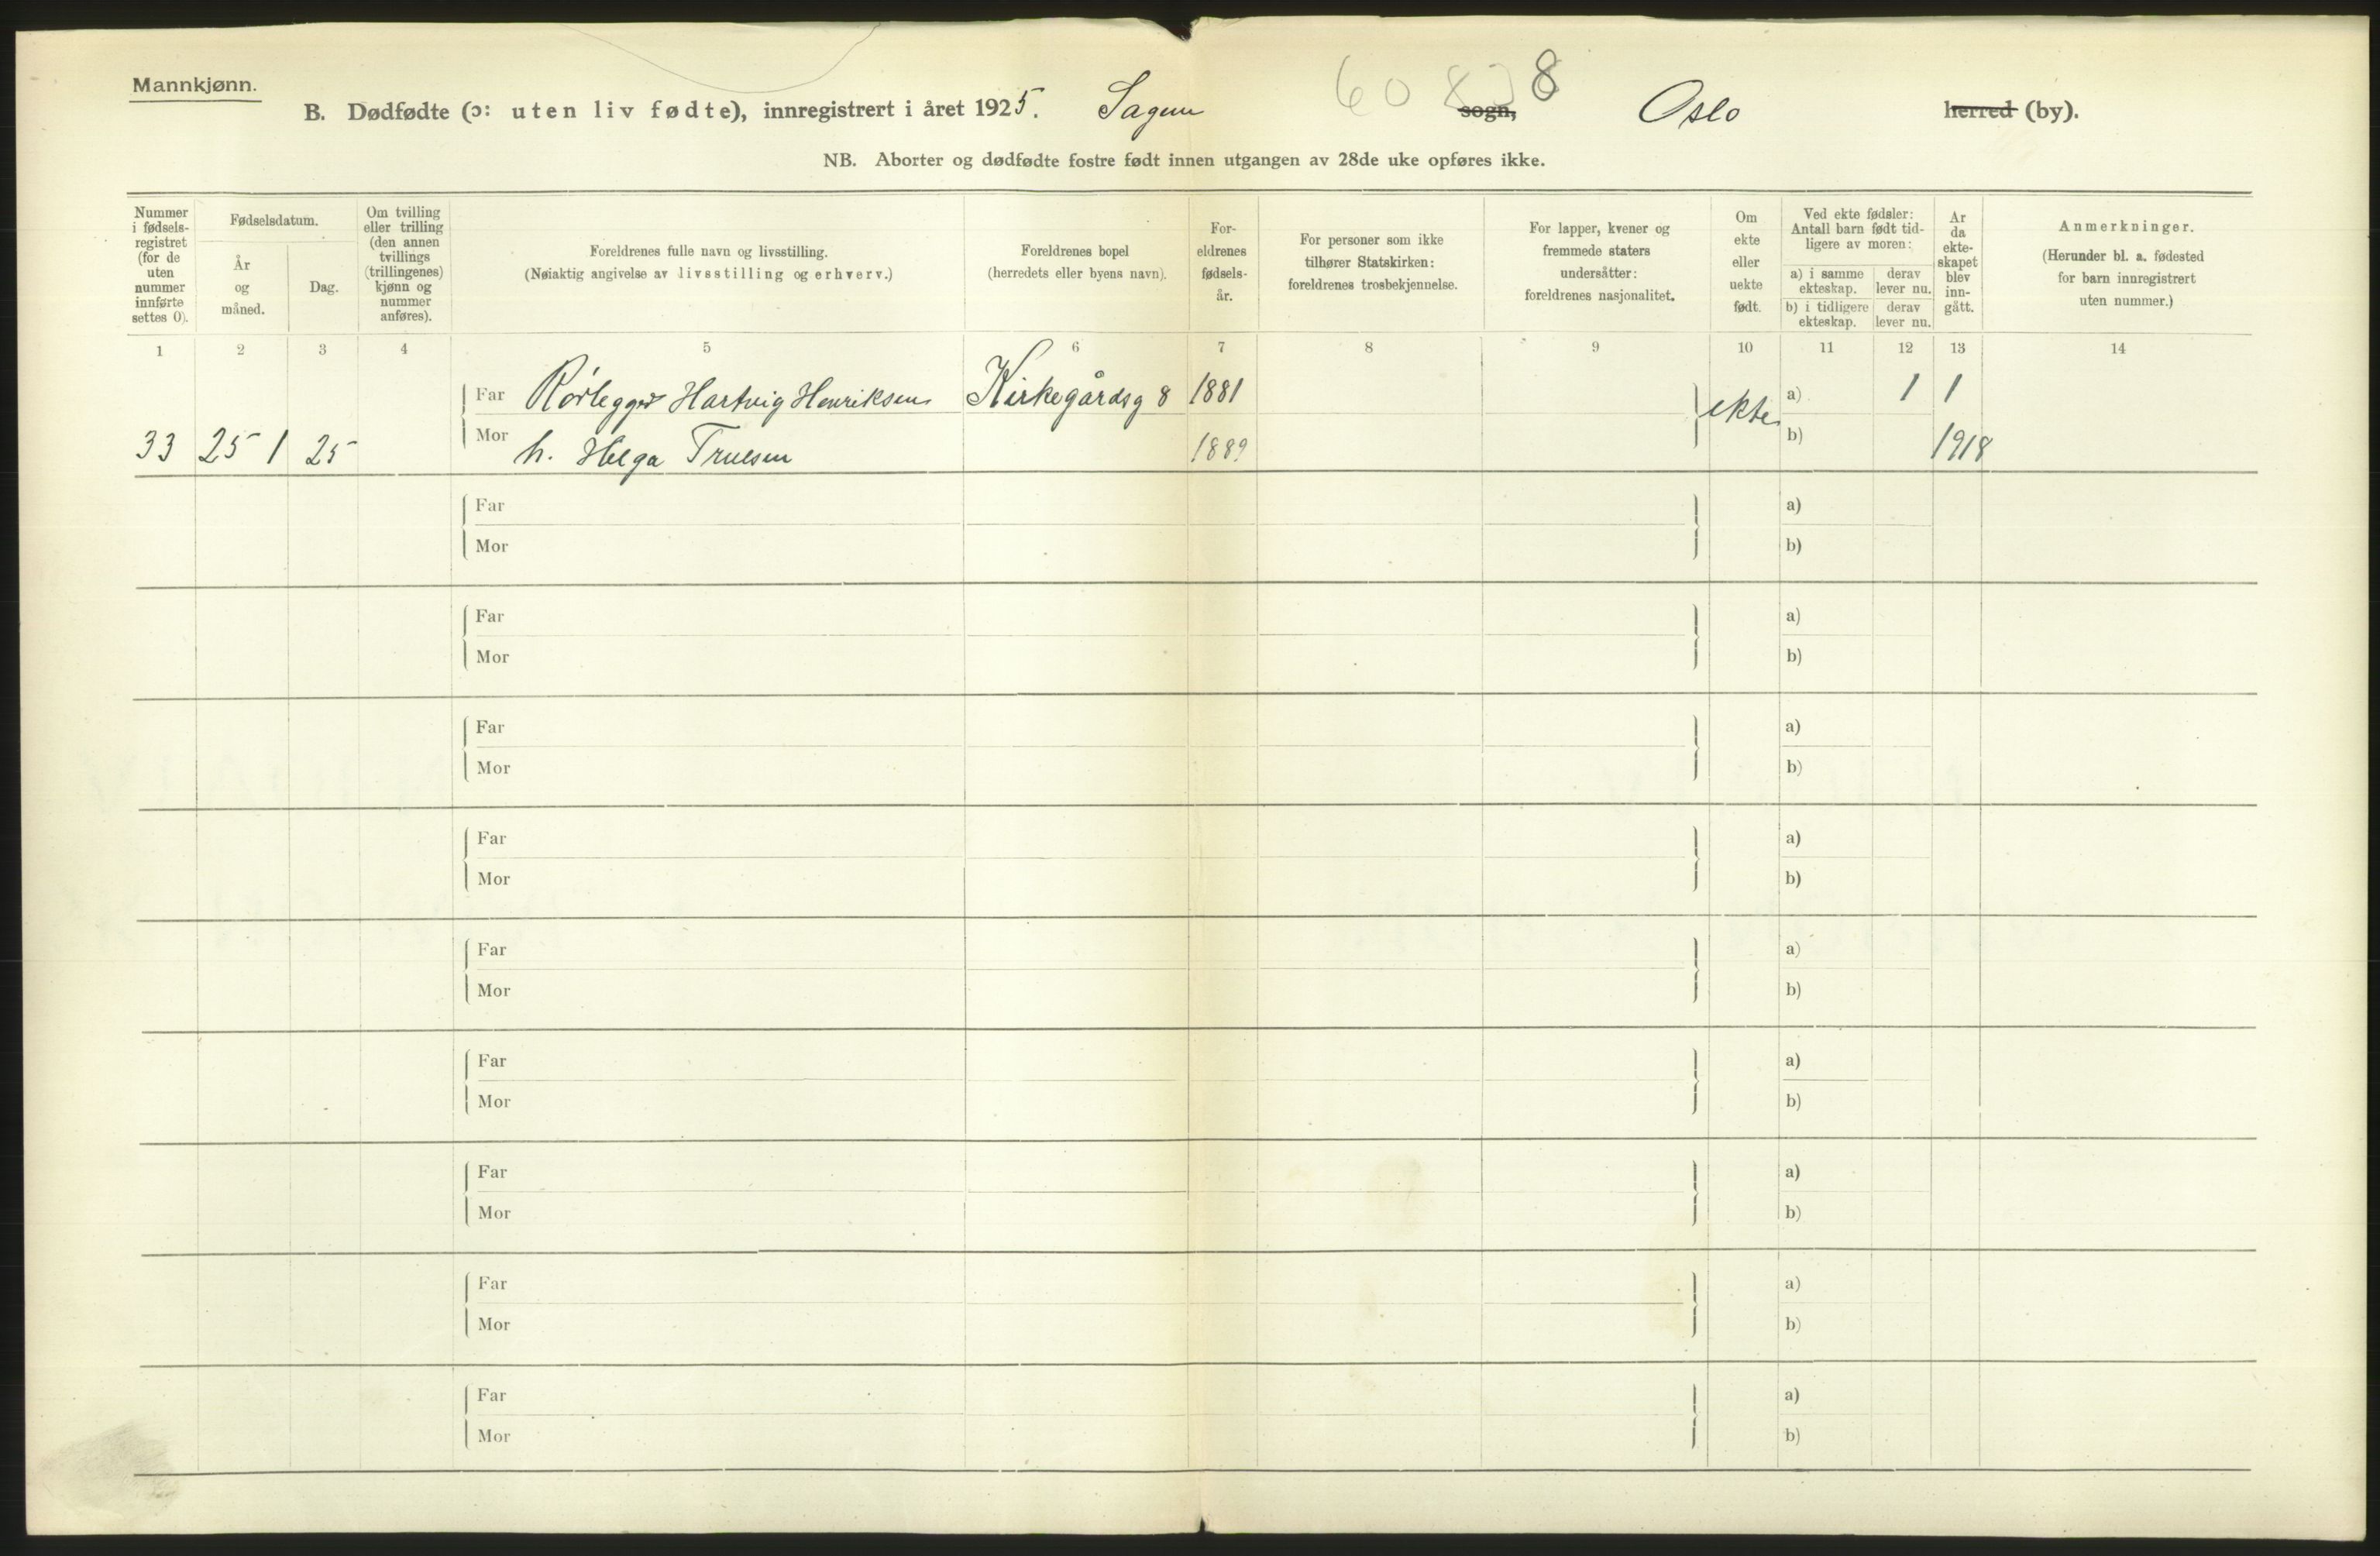 Mannkjønn.
60 8 8
B. Dødfødte (ɔ: uten liv fødte), innregistrert i året 1925. Sagene sogn, Oslo herred (by).
NB. Aborter og dødfødte fostre født innen utgangen av 28de uke opføres ikke.
Nummer
i fødsels-
registret
(for de
uten
nummer
innførte
settes 0).
Fødselsdatum.
År
og
måned.
Dag.
Om tvilling
eller trilling
(den annen
tvillings
(trillingenes)
kjønn og
nummer
anføres).
Foreldrenes fulle navn og livsstilling.
(Nøiaktig angivelse av livsstilling og erhverv.)
Foreldrenes bopel
(herredets eller byens navn).
For-
eldrenes
fødsels-
år.
For personer som ikke
tilhører Statskirken:
foreldrenes trosbekjennelse.
For lapper, kvener og
fremmede staters
undersåtter:
foreldrenes nasjonalitet.
Om
ekte
eller
uekte
født.
Ved ekte fødsler:
Antall barn født tid-
ligere av moren:
a) i samme
ekteskap.
derav
lever nu.
b) i tidligere
ekteskap.
derav
lever nu.
Ar
da
ekte-
skapet
blev
inn-
gått.
Anmerkninger.
(Herunder bl. a. fødested
for barn innregistrert
uten nummer.)
1 2 3 4 5 6 7 8 9 10 11 12 13 14
Far Rørlegger Hartvig Henriksen Kirkegårdsg 8 1881 ekte a) 1 1
33 25 1 25 Mor h. Helga Truesen 1889 b) 1918
Far a)
Mor b)
Far a)
Mor b)
Far a)
Mor b)
Far a)
Mor b)
Far a)
Mor b)
Far a)
Mor b)
Far a)
Mor b)
Far a)
Mor b)
Far a)
Mor b)